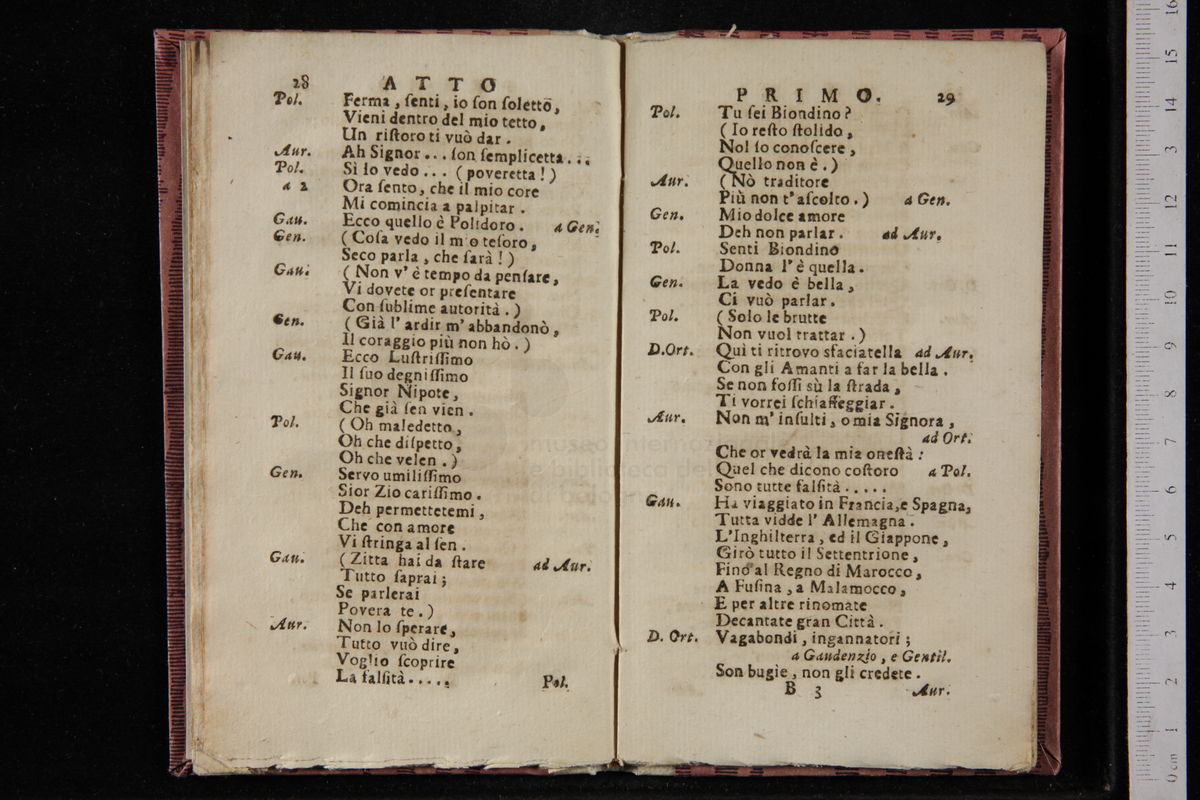 28 ATTO
Pol. Ferma, ſenti, io ſon ſoletto,
Vieni dentro del mio tetto,
Un riſtoro ti vuò dar.
Aur. Ah Signor... ſon ſemplicetta...
Pol. Sì lo vedo... (poveretta!)
a 2 Ora ſento, che il mio core
Mi comincia a palpitar.
Gau. Ecco quello è Polidoro. a Gen.
Gen. (Coſa vedo il mio teſoro,
Seco parla, che ſarà!)
Gau. (Non v'è tempo da penſare,
Vi dovete or preſentare
Con ſublime autorità.)
Gen. (Già l'ardir m'abbandonò,
Il coraggio più non hò.)
Gau. Ecco Luſtriſſimo
Il ſuo degniſſimo
Signor Nipote,
Che già ſen vien.
Pol. (Oh maledetto,
Oh che diſpetto,
Oh che velen.)
Gen. Servo umiliſſimo
Sior Zio cariſſimo.
Deh permettetemi,
Che con amore
Vi ſtringa al ſen.
Gau. (Zitta hai da ſtare ad Aur.
Tutto ſaprai;
Se parlerai
Povera te.)
Aur. Non lo ſperare,
Tutto vuò dire,
Voglio ſcoprire
La falſità.....
Pol.
PRIMO. 29
Pol. Tu ſei Biondino?
(Io reſto ſtolido,
Nol ſo conoſcere,
Quello non è.)
Aur. (Nò traditore
Più non t'aſcolto.) a Gen.
Gen. Mio dolce amore
Deh non parlar. ad Aur.
Pol. Senti Biondino
Donna l'è quella.
Gen. La vedo è bella,
Ci vuò parlar.
Pol. (Solo le brutte
Non vuol trattar.)
D.Ort. Quì ti ritrovo sfaciatella ad Aur.
Con gli Amanti a far la bella.
Se non foſſi sù la ſtrada,
Ti vorrei ſchiaffeggiar.
Aur. Non m'inſulti, o mia Signora,
ad Ort.
Che or vedrà la mia oneſtà:
Quel che dicono coſtoro a Pol.
Sono tutte falſità.....
Gau. Ha viaggiato in Francia, e Spagna,
Tutta vidde l'Allemagna.
L'Inghilterra, ed il Giappone,
Girò tutto il Settentrione,
Fino al Regno di Marocco,
A Fuſina, a Malamocco,
E per altre rinomate
Decantate gran Città.
D. Ort. Vagabondi, ingannatori;
a Gaudenzio, e Gentil.
Son bugie, non gli credete.
B 3 Aur.